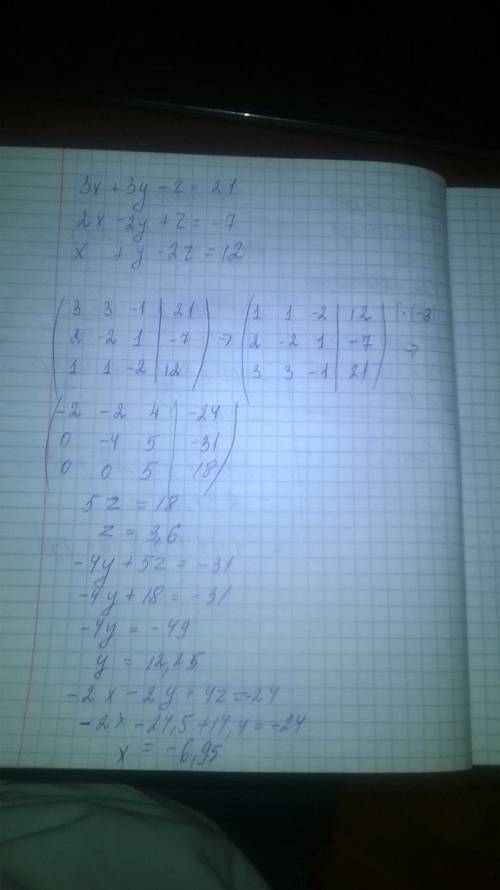 3x + 3y - z = 21
2x - 2y + z = -7
x + y - 2z = 12
( 3 3 -1 | 21 ) → ( 1 1 -2 | 12 ) | · (-2)
( 2 -2 1 | -7 ) ( 2 -2 1 | -7 ) →
( 1 1 -2 | 12 ) ( 3 3 -1 | 21 )
( -2 -2 4 | -24 )
( 0 -4 5 | -31 )
( 0 0 5 | 18 )
5z = 18
z = 3,6
-4y + 5z = -31
-4y + 18 = -31
-4y = -49
y = 12,25
-2x - 2y + 4z = -24
-2x - 24,5 + 14,4 = -24
x = -6,95